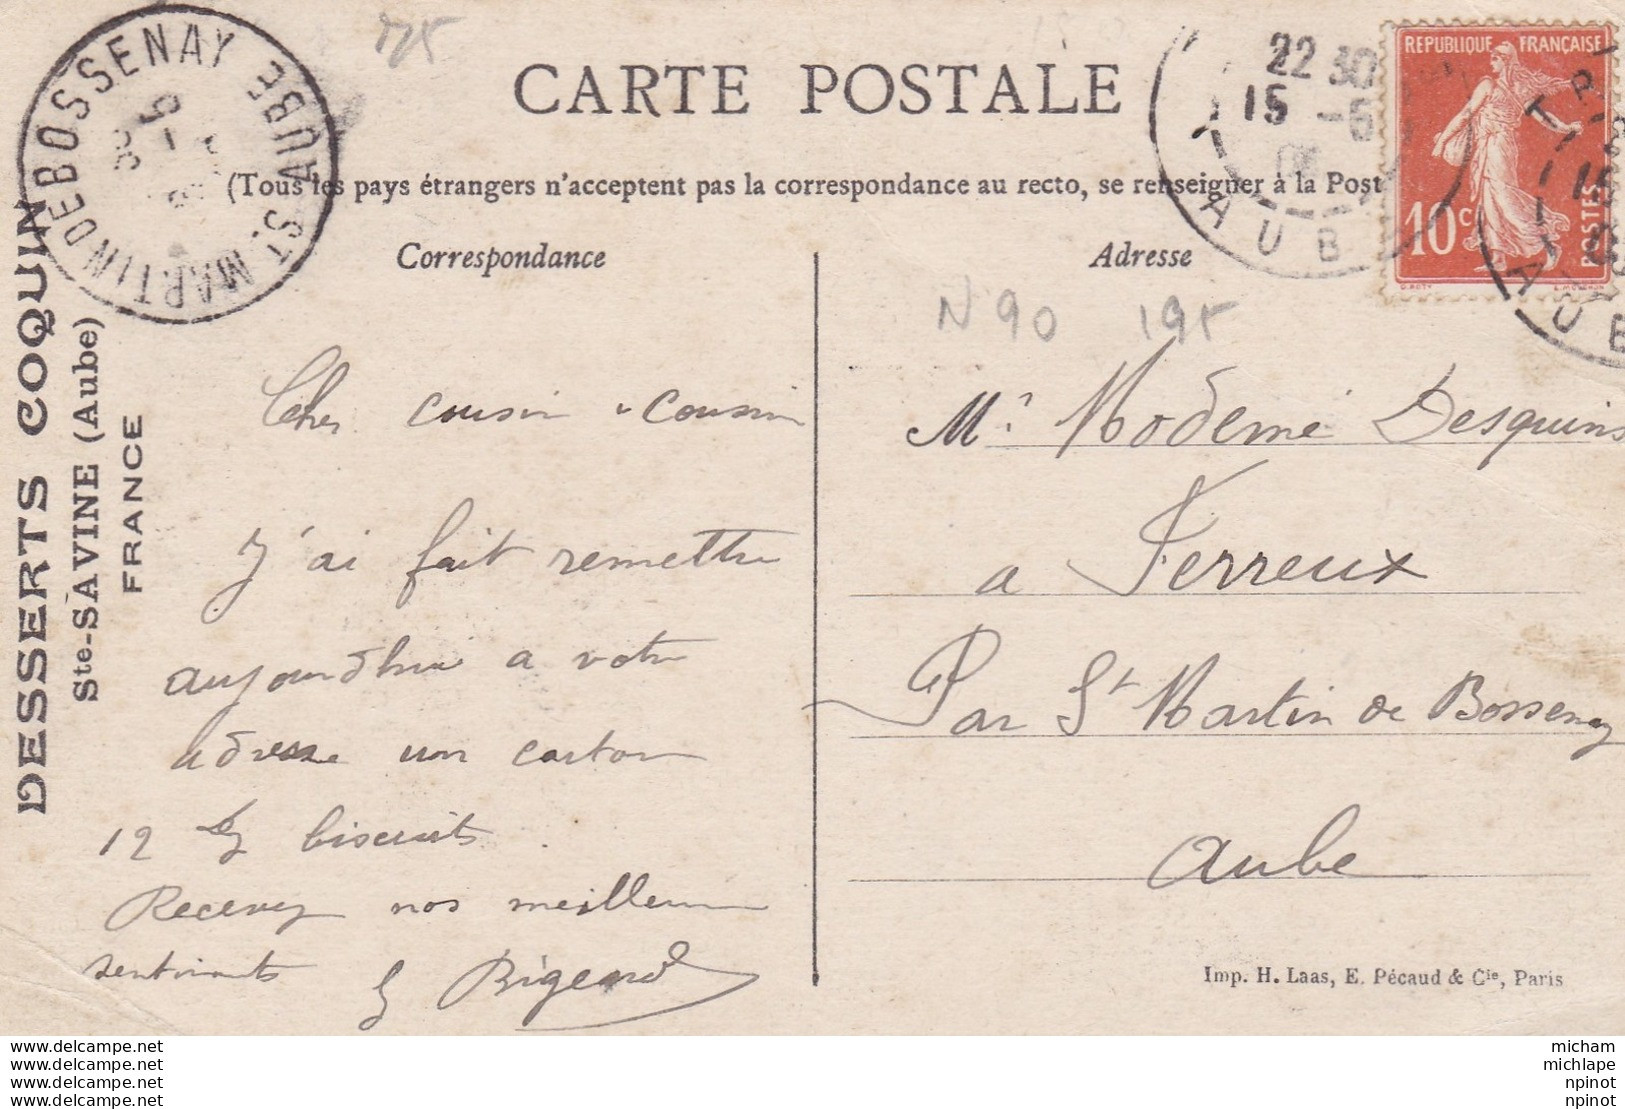 CARTE POSTALE
(Tous les pays étrangers n'acceptent pas la correspondance au recto, se renseigner à la Post
Correspondance
Adresse
ST. MARTIN DE BOSSENAY AUBE
22 30
15 -5
AUB
REPUBLIQUE FRANÇAISE
10c
POSTES
O. ROTY
15
AUB
DESSERTS COQUIN
Ste-SAVINE (Aube)
FRANCE
N 90 195
Cher cousin & cousine
J'ai fait remettre
aujourdhui a votre
adresse un carton
12 biscuits.
Recevez nos meilleurs
sentiments
Bigeard
Mr. Modeme Desquins
a Ferreux
Par St Martin de Bossenay
Aube
Imp. H. Laas, E. Pécaud & Cie, Paris
www.delcampe.net
www.delcampe.net
www.delcampe.net
www.delcampe.net
micham
michlape
npinot
npinot